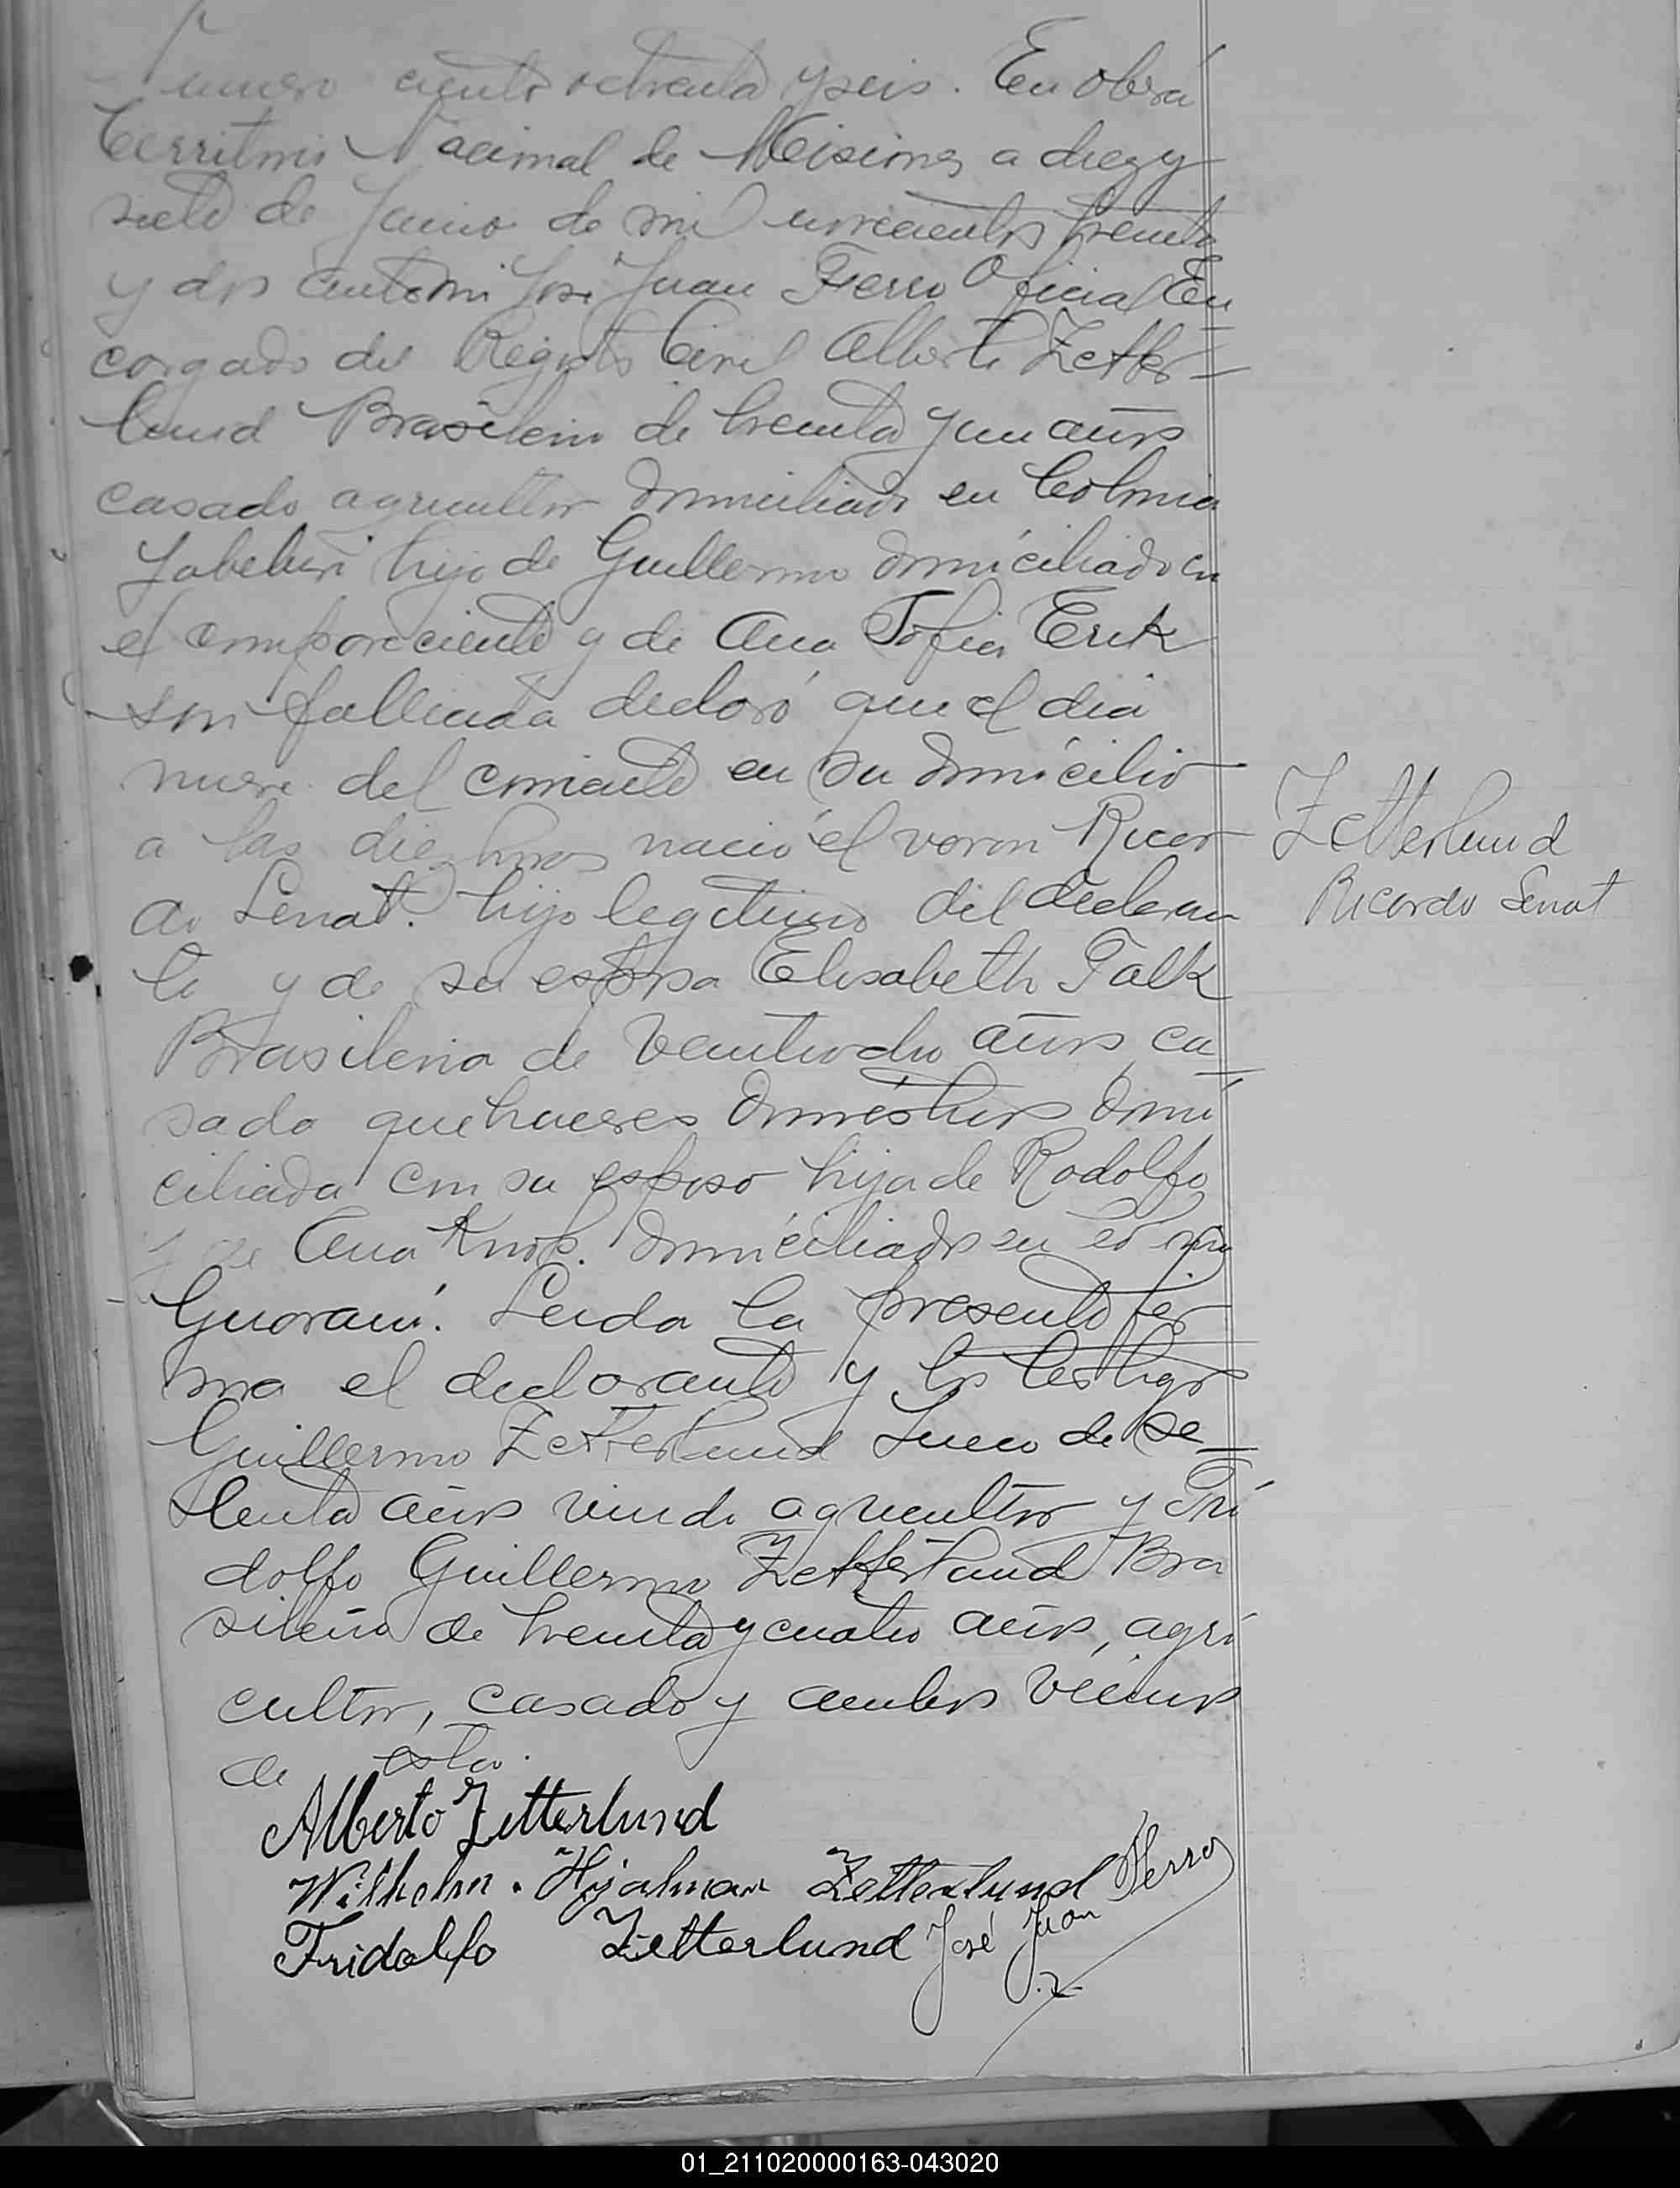 Numero ciento ochenta y seis. En Oberá
Territorio Nacional de Misiones a diez y
siete de Junio de mil novecientos treinta
y dos ante mi José Juan Fierro Oficial En
cargado del Registro Civil Alberto Zetter-
lund Brasileño de treinta y un años
casado agricultor domiciliado en Colonia
Yabebiri hijo de Guillermo domiciliado en
el compareciente y de Ana Sofia Erik
son fallecida declaró que el dia
nueve del corriente en su domicilio
a las diez horas nació el varon Ricar
do Senat. hijo legitimo del declaran
te y de su esposa Elisabeth Falk
Brasileña de veintiocho años ca-
sada quehaceres domésticos domi
ciliada con su esposo hija de Rodolfo
y de Ana domiciliados en
Guaraní. Leida la presente fir
ma el declarante y los testigos
Guillermo Zetterlund Sueco de se-
tenta años viudo agricultor y Fri
dolfo Guillermo Zetterlund Bra
sileño de treinta y cuatro años, agri
cultor, casado y ambos vecinos
de esta.
Zetterlund
Ricardo Senat
Alberto Zetterlund
Wilhelm. Hjalmar Zetterlund
Fridolfo Zetterlund José Juan Fierro
01_211020000163-043020